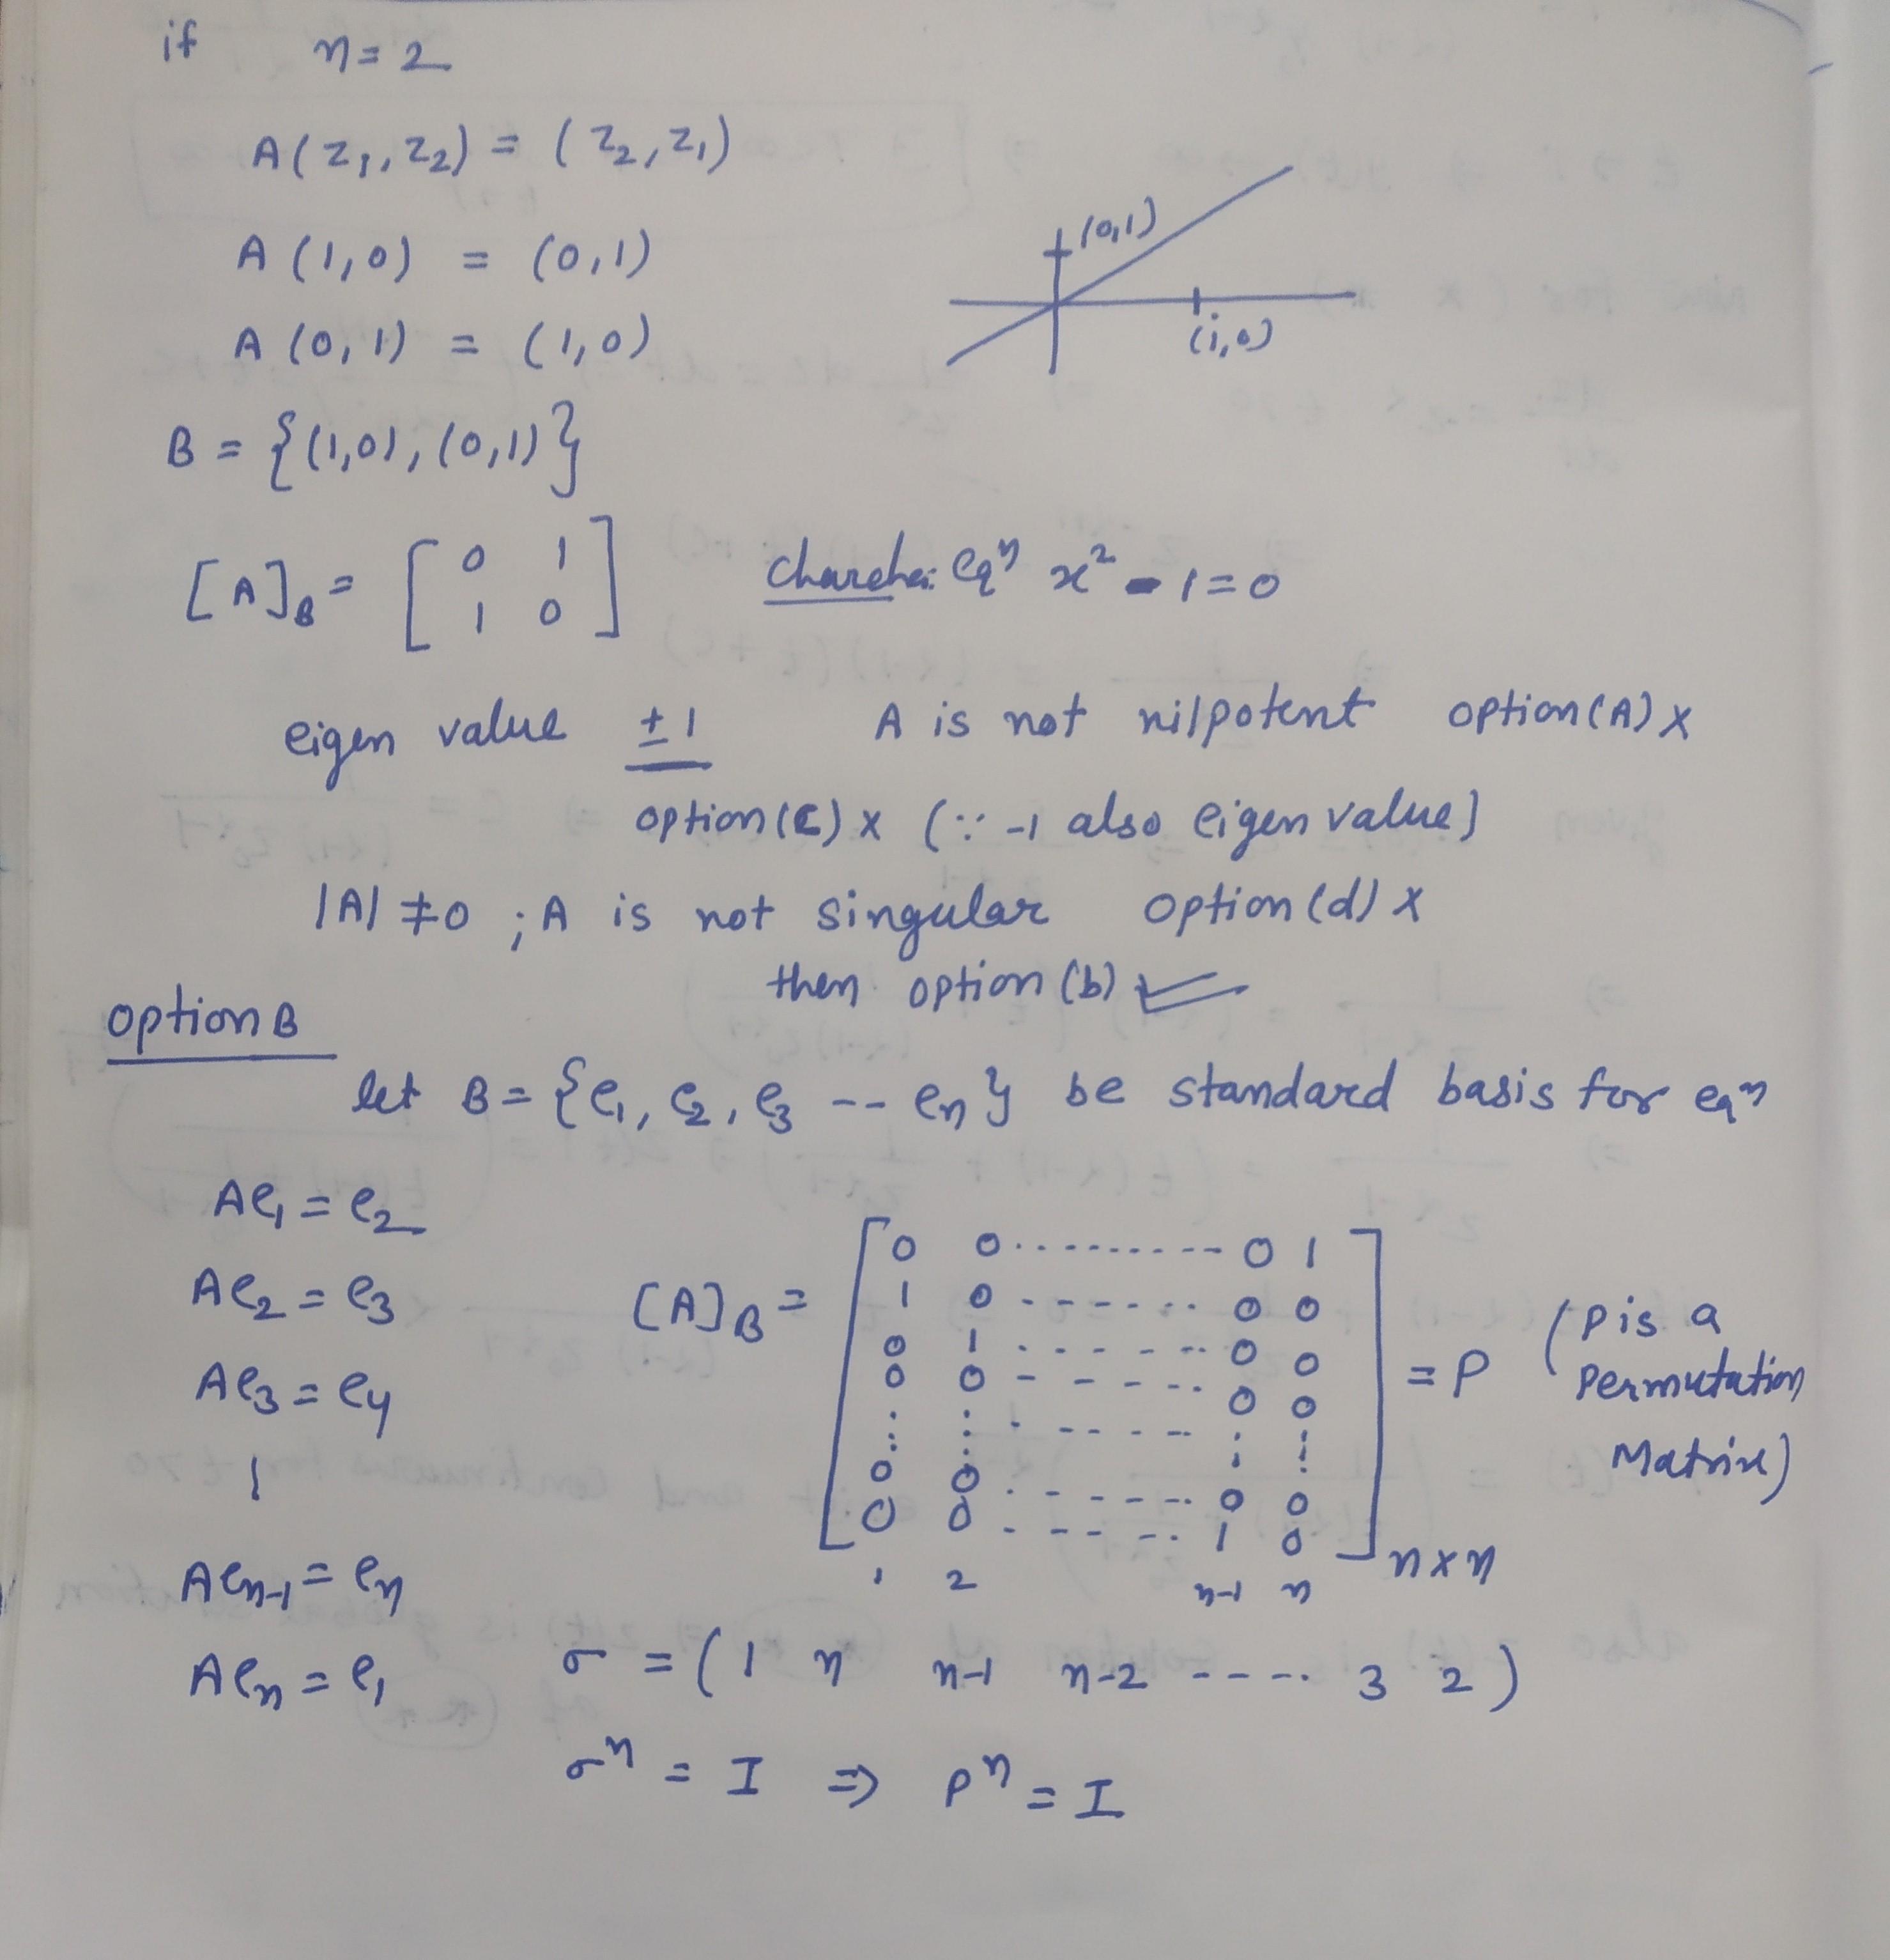 if n=2
A(z₁,z₂) = (z₂,z₁)
A(1,0) = (0,1)
A(0,1) = (1,0)
(0,1)
(1,0)
B = {(1,0), (0,1)}
[A]_B = [0 1
1 0]
eqⁿ x² - 1=0
eigen value ±1 A is not nilpotent option(A) x
option(C) x (∵ -1 also eigen value)
|A| ≠ 0 ; A is not singular option(d) x
then option (b) ✓
option B
let B = {e₁, e₂, e₃ -- eₙ} be standard basis for eqⁿ
Ae₁ = e₂
Ae₂ = e₃
Ae₃ = e₄
|
Aeₙ₋₁ = eₙ
Aeₙ = e₁
[A]_B =
0 0 ---------- 0 1
1 0 ------ 0 0
0 1 ------ 0 0
0 0 ------ 0 0
⋮ ⋮ ------ ⋮ ⋮
0 0 ------ 0 0
0 0 ------ 1 0
n×n
1 2 n-1 n
= P (P is a
Permutation
Matrix)
σ = (1 n n-1 n-2 ---- 3 2)
σⁿ = I ⇒ Pⁿ = I